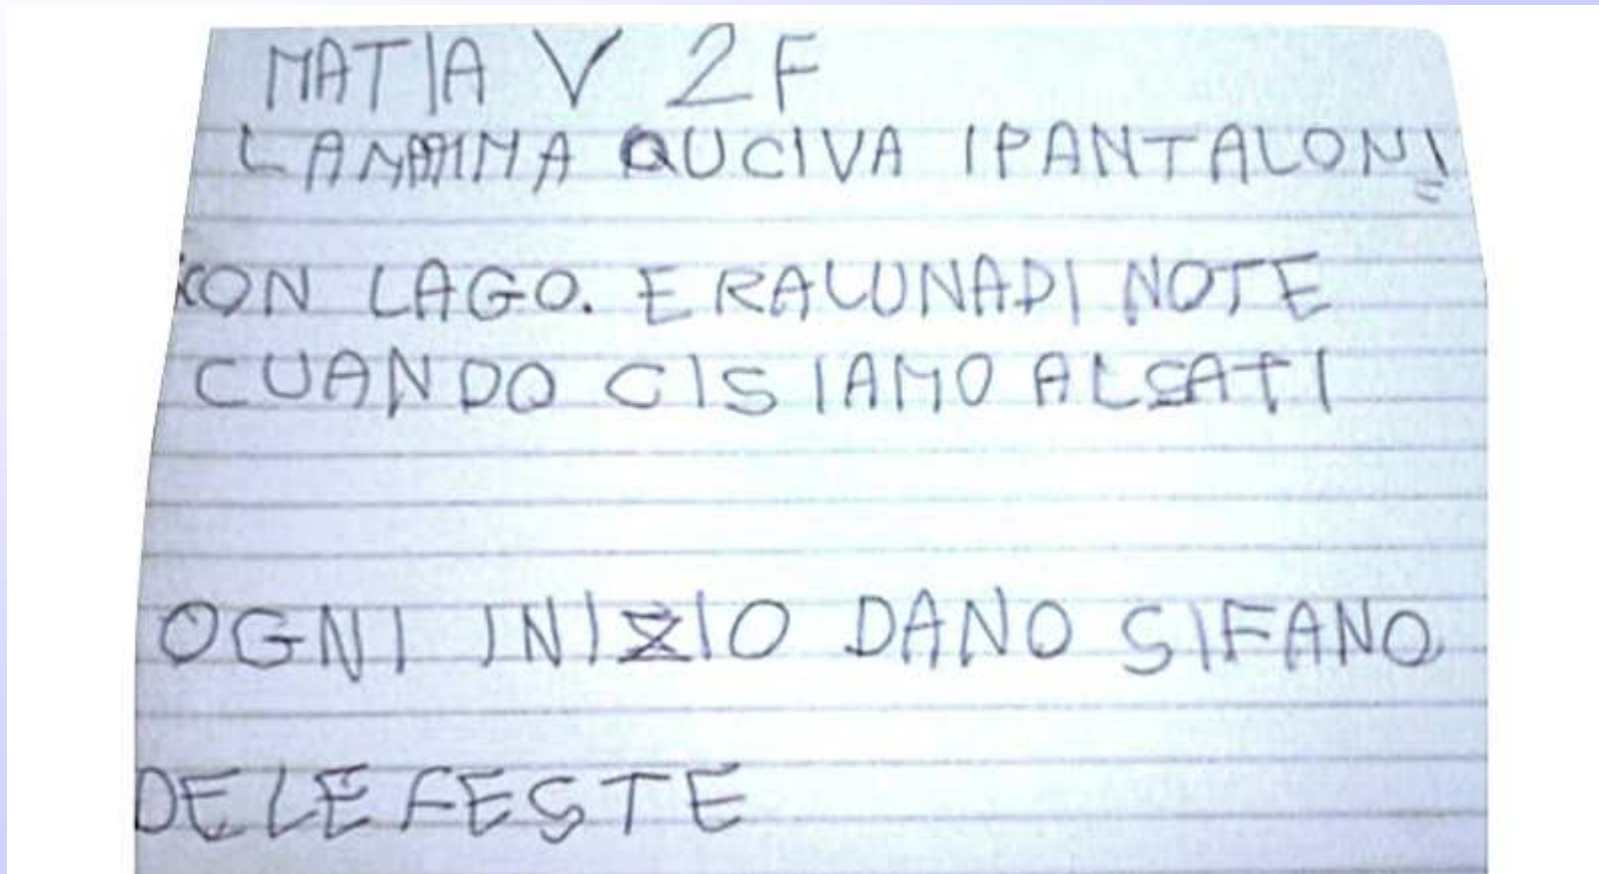 MATIA V 2F
LAMMMA QUCIVA IPANTALONI
CON LAGO. ERALUNADI NOTE
CUANDO CISIAMO ALSATI
OGNI INIZIO DANO SIFANO
DELE FESTE